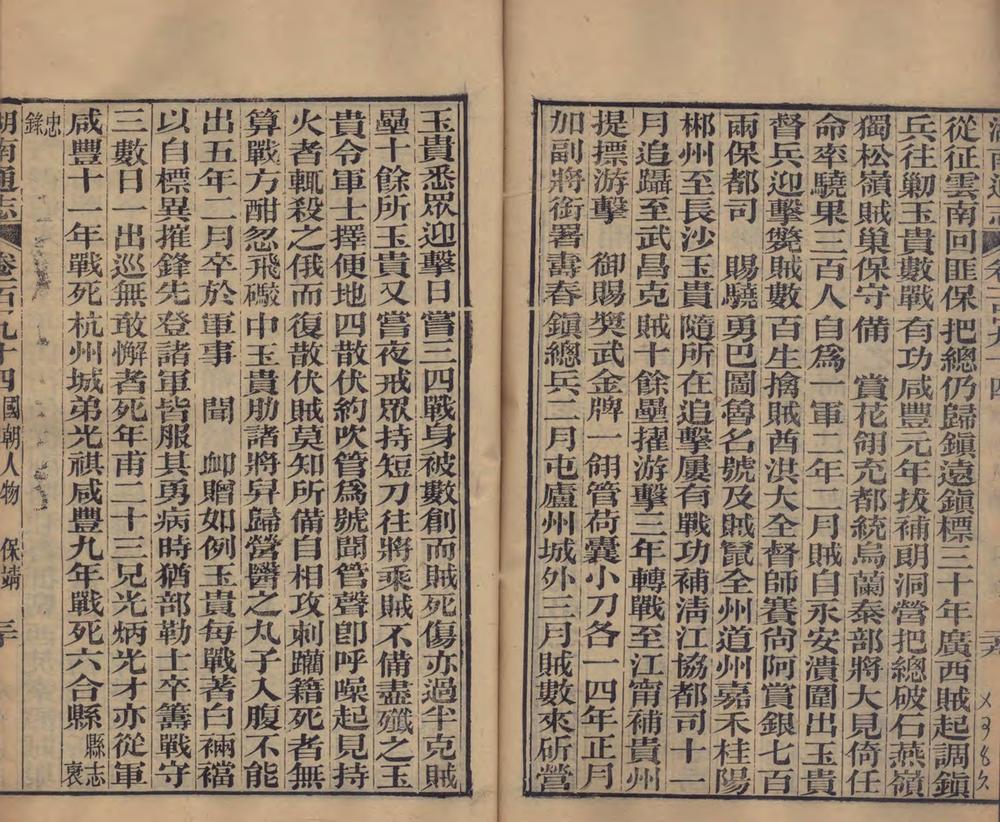 從征雲南回匪保把總仍歸鎭遠鎭標三十年廣西賊起調鎭
兵往勦玉貴數戰有功咸豐元年拔補朗洞營把總破石燕嶺
獨松嶺賊巢保守備　賞花翎充都統烏蘭泰部將大見倚任
命率驍果三百人自爲一軍二年二月賊自永安潰圍出玉貴
督兵迎擊斃賊數百生擒賊酋洪大全督師賽尙阿賞銀七百
兩保都司　賜驍勇巴圖魯名號及賊竄全州道州嘉禾桂陽
郴州至長沙玉貴隨所在追擊屢有戰功補淸江協都司十一
月追躡至武昌克賊十餘壘擢游擊三年轉戰至江甯補貴州
提標游擊　御賜獎武金牌一翎管荷囊小刀各一四年正月
加副將銜署壽春鎭總兵二月屯廬州城外三月賊數來斫營
玉貴悉眾迎擊日嘗三四戰身被數創而賊死傷亦過半克賊
壘十餘所玉貴又嘗夜戒眾持短刀往將乘賊不備盡殲之玉
貴令軍士擇便地四散伏約吹管爲號聞管聲卽呼噪起見持
火者輒殺之俄而復散伏賊莫知所備自相攻刺躪籍死者無
算戰方酣忽飛礮中玉貴肋諸將舁歸營醫之丸子入腹不能
出五年二月卒於軍事　聞　卹贈如例玉貴每戰著白裲襠
以自標異摧鋒先登諸軍皆服其勇病時猶部勒士卒籌戰守
三數日一出巡無敢懈者死年甫二十三兄光炳光才亦從軍
咸豐十一年戰死杭州城弟光祺咸豐九年戰死六合縣縣志褒
忠錄
湖南通志　卷百九十四　國朝人物　保靖　三十